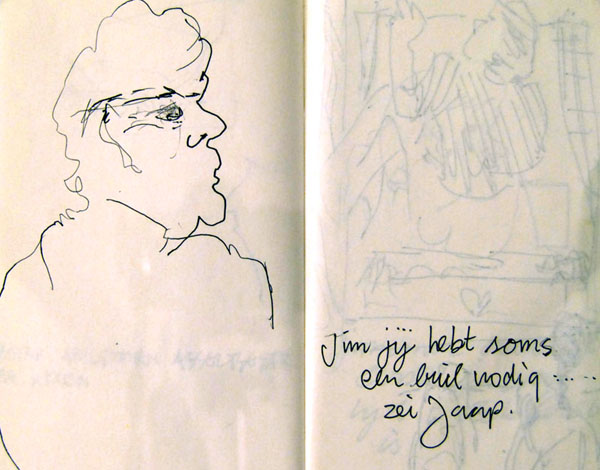 Jim jij hebt soms
een bril nodig......
zei Jaap.